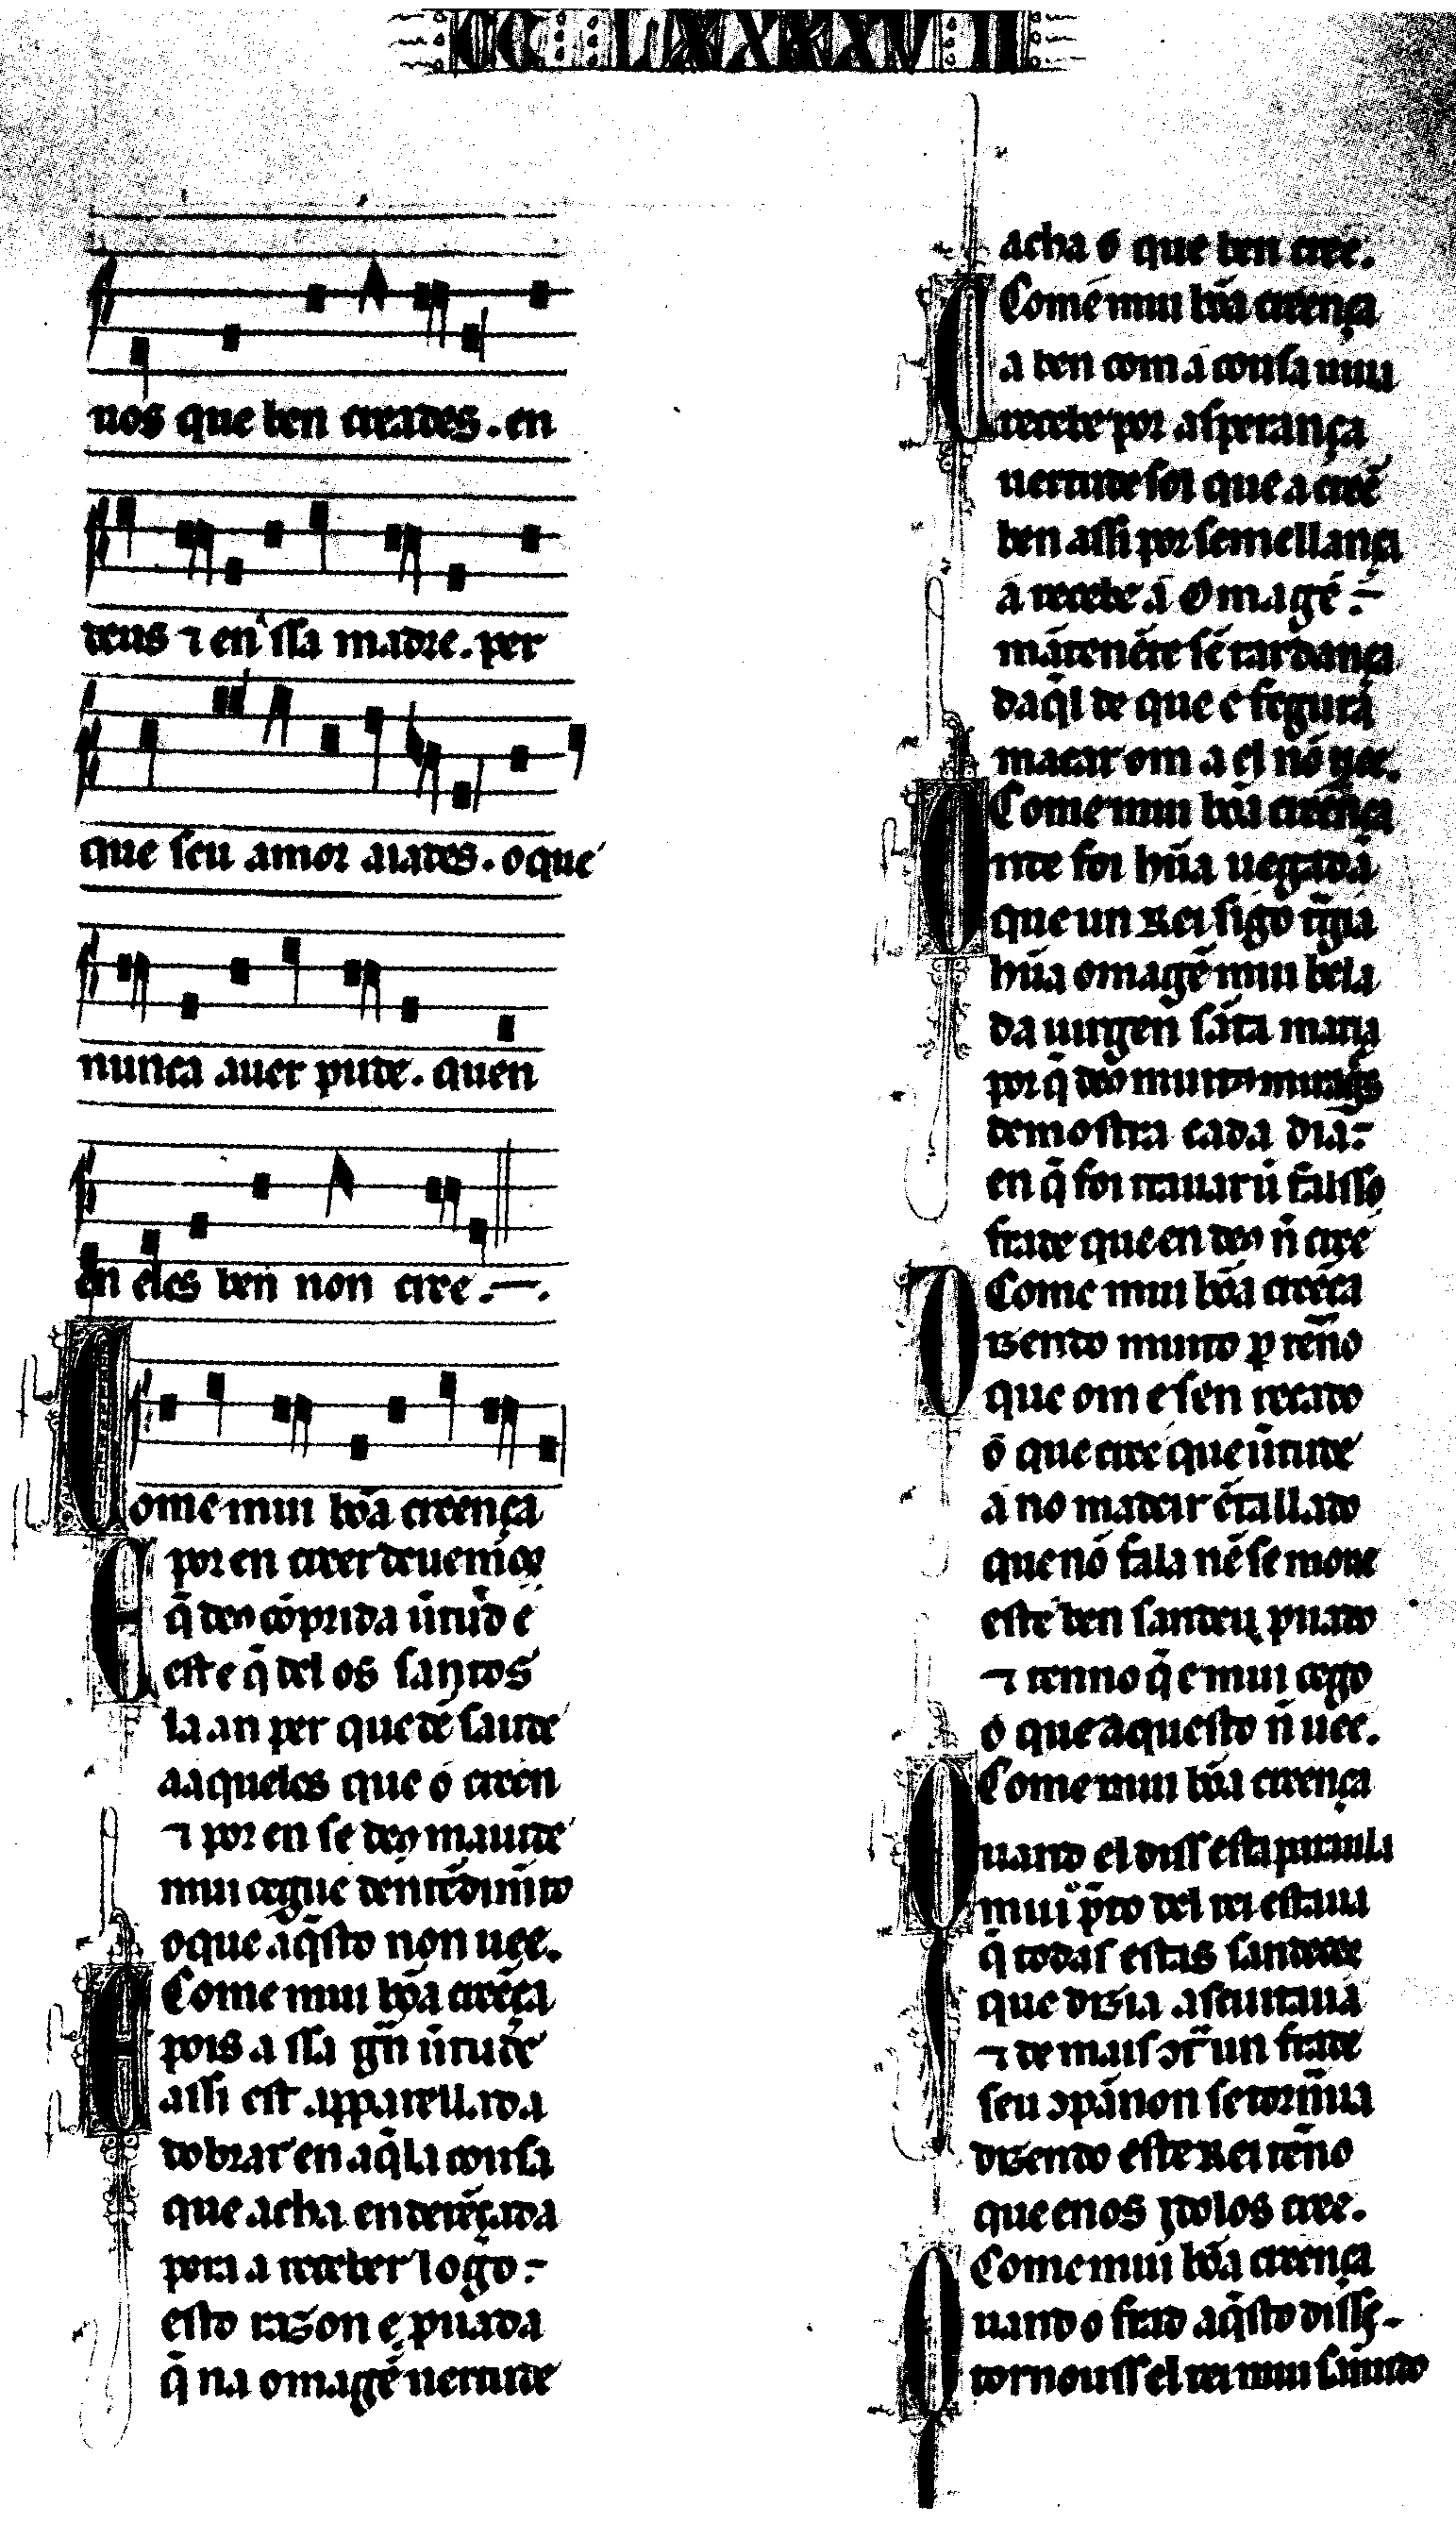 CCLXXXXVII
uos que ben creades. en
deus ⁊ en ssa madre. per
que seu amor aiades. o que
nunca auer pude. quen
en eles ben non cree.
Come mui bõa creença
E por en creer deuemos
q̃ deꝯ cõprida ũtud é
este q̃ del os santos
la an per que dẽ saude
aaqueles que o creen
⁊ por en se deꝯ maiude
mui cegue
o que aq̃sto non uee.
Come mui bõa creẽça
E pois a ssa gñ ũtude
assi est apparellada
dobrar en aq̃la cousa
que acha endereçada
pera a receber logo
esto razon e puada
q̃ na omagẽ uertude
acha o que ben cree.
Come mui bõa creença
Ca ben com a cousa uiua
recebe por asperança
uertude sol que a creé
ben assi por semellança
a recebe a omagẽ
mãtenẽte sẽ tardança
daq̃l de que e fegura
macar om a el nõ uee.
Come mui bõa creẽça
Onde foi hũa uegada
que un Rei sigo tragia
hũa omagẽ mui bela
da uirgen sãta maria
por q̃ deꝯ muitos miragꝯs
demostra cada dia
en q̃ foi trauar ũ falsso
frade que en deꝯ ñ cree
Come mui bõa creẽça
Dizendo muito p̱ tẽno
que om e sen recado
o que cree que ũtude
a no madeir ẽtallado
que nõ fala nẽ se moue
este ben sandeu puado
⁊ tenno q̃ e mui cego
o que aquesto ñ uee.
Come mui bõa creença
Quando el diss esta paraula
mui p̱to del rei estaua
q̃ todas estas sandeces
que dizia ascuitaua
⁊ de mais ↄtr̃ un frade
seu ↄpannon se tornaua
dizendo este Rei tẽno
que enos ydolos cree.
Come mui bõa creença
Quando o frad aq̃sto disse
tornouss el rei mui sannudo